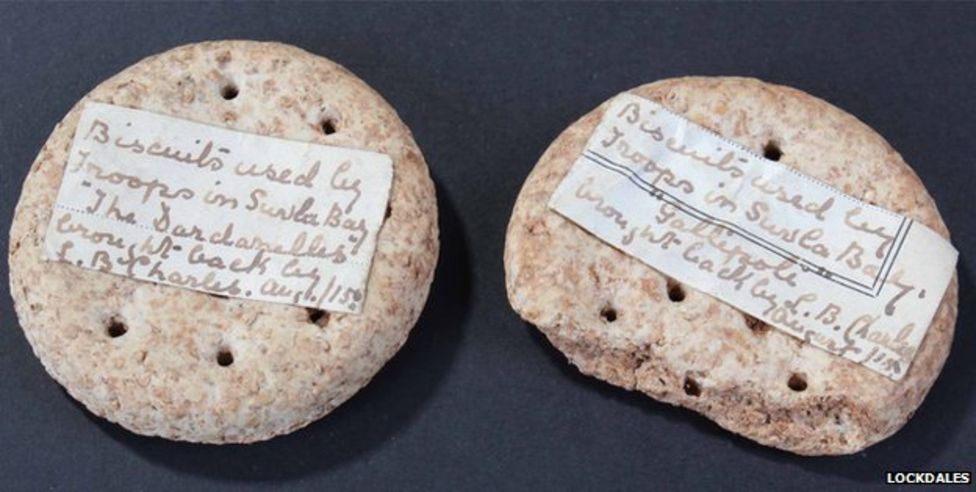 Biscuits used by
Troops in Suvla Bay
"The Dardanelles"
brought back by
L. B. Charles. Aug./15.
Biscuits used by
Troops in Suvla Bay.
Gallipoli
brought back by L. B. Charles
August/15.
LOCKDALES